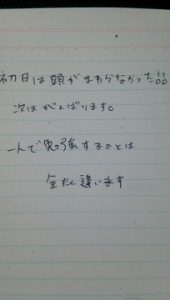 初日は頭がまわらなかった!!
次はがんばります。
一人で勉強するのとは
全たく違います